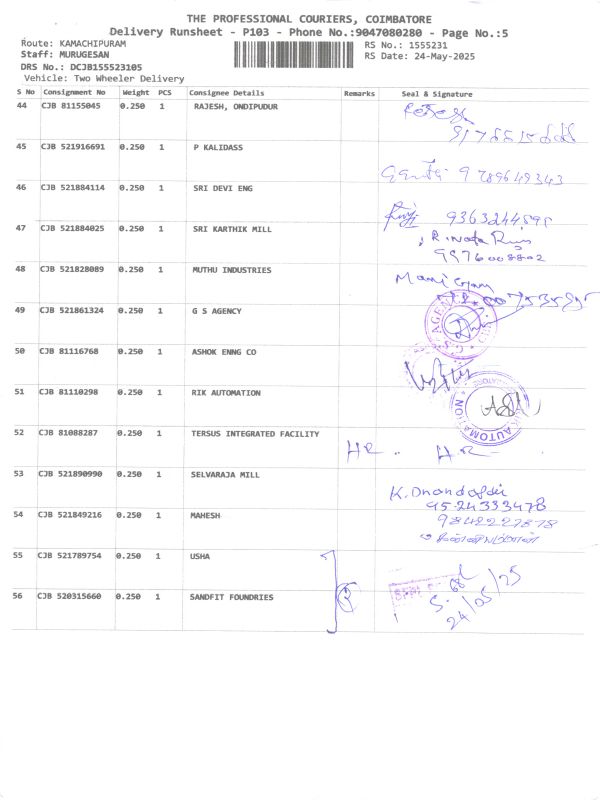 THE PROFESSIONAL COURIERS, COIMBATORE
Delivery Runsheet - P103 - Phone No.:9047080280 - Page No.:5
Route: KAMACHIPURAM RS No.: 1555231
Staff: MURUGESAN RS Date: 24-May-2025
DRS No.: DCJB155523105
Vehicle: Two Wheeler Delivery
S No Consignment No Weight PCS Consignee Details Remarks Seal & Signature
44 CJB 81155045 0.250 1 RAJESH, ONDIPUDUR
45 CJB 521916691 0.250 1 P KALIDASS
9789649343
46 CJB 521884114 0.250 1 SRI DEVI ENG
47 CJB 521884025 0.250 1 SRI KARTHIK MILL
9976008802
48 CJB 521828089 0.250 1 MUTHU INDUSTRIES
49 CJB 521861324 0.250 1 G S AGENCY
50 CJB 81116768 0.250 1 ASHOK ENNG CO
51 CJB 81110298 0.250 1 RIK AUTOMATION
52 CJB 81088287 0.250 1 TERSUS INTEGRATED FACILITY
HR HR
53 CJB 521890990 0.250 1 SELVARAJA MILL
9524333478
54 CJB 521849216 0.250 1 MAHESH
9842227878
55 CJB 521789754 0.250 1 USHA
56 CJB 520315660 0.250 1 SANDFIT FOUNDRIES
24/05/25